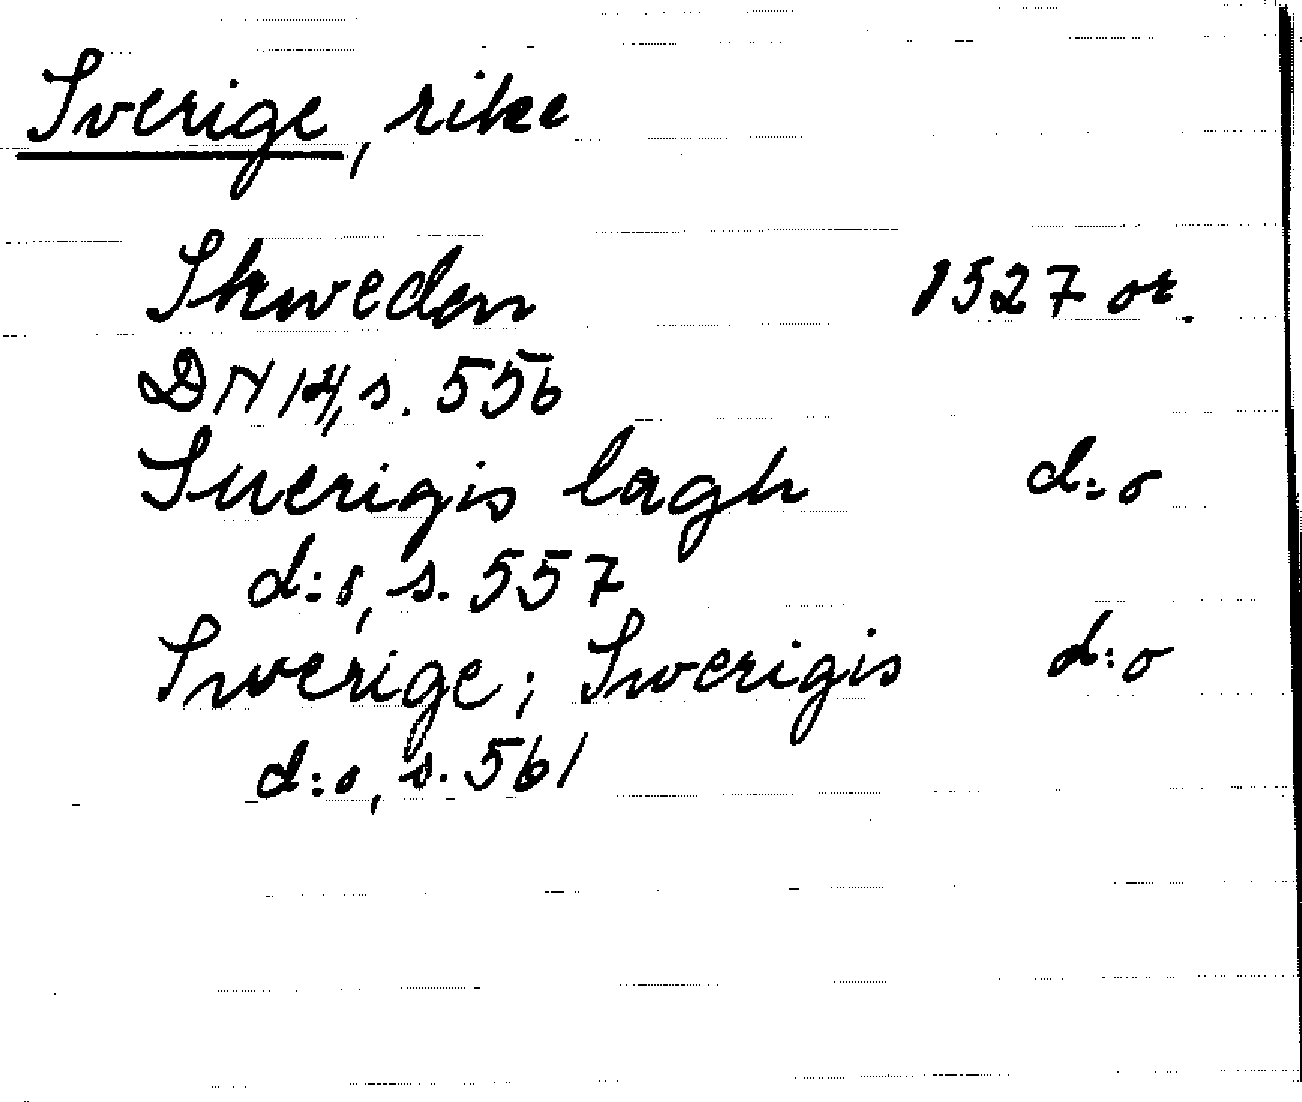 Sverige, rike
Skweden 1527 or.
DN 14, s. 556
Suerigis lagh d:o
d:o, s. 557
Swerige; Swerigis d:o
d:o, s. 561